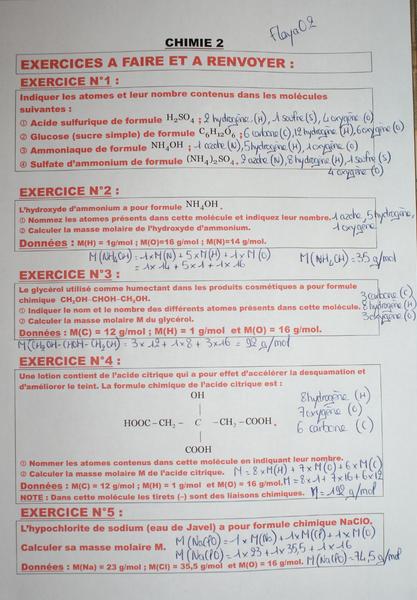 CHIMIE 2
Flaya02
EXERCICES A FAIRE ET A RENVOYER :
EXERCICE N°1 :
Indiquer les atomes et leur nombre contenus dans les molécules
suivantes :
① Acide sulfurique de formule H₂SO₄ ; 2 hydrogène (H), 1 soufre (S), 4 oxygène (O)
② Glucose (sucre simple) de formule C₆H₁₂O₆ ; 6 carbone (C), 12 hydrogène (H), 6 oxygène (O)
③ Ammoniaque de formule NH₄OH ; 1 azote (N), 5 hydrogène (H), 1 oxygène (O)
④ Sulfate d'ammonium de formule (NH₄)₂SO₄. 2 azote (N), 8 hydrogène (H), 1 soufre (S)
4 oxygène (O)
EXERCICE N°2 :
L'hydroxyde d'ammonium a pour formule NH₄OH .
① Nommez les atomes présents dans cette molécule et indiquez leur nombre. 1 azote, 5 hydrogène,
② Calculer la masse molaire de l'hydroxyde d'ammonium. 1 oxygène
Données : M(H) = 1g/mol ; M(O)=16 g/mol ; M(N)=14 g/mol.
M(NH₄OH) = 1 x M(N) + 5 x M(H) + 1 x M(O)
= 1 x 14 + 5 x 1 + 1 x 16
M(NH₄OH) = 35 g/mol
EXERCICE N°3 :
Le glycérol utilisé comme humectant dans les produits cosmétiques a pour formule
chimique CH₂OH-CHOH-CH₂OH. 3 carbone (C)
① Indiquer le nom et le nombre des différents atomes présents dans cette molécule. 8 hydrogène (H)
② Calculer la masse molaire M du glycérol. 3 oxygène (O)
Données : M(C) = 12 g/mol ; M(H) = 1 g/mol et M(O) = 16 g/mol.
M(CH₂OH-CHOH-CH₂OH) = 3 x 12 + 1 x 8 + 3 x 16 = 92 g/mol
EXERCICE N°4 :
Une lotion contient de l'acide citrique qui a pour effet d'accélérer la desquamation et
d'améliorer le teint. La formule chimique de l'acide citrique est :
OH
8 hydrogène (H)
7 oxygène (O)
HOOC – CH₂ – C – CH₂ – COOH .
6 carbone (C)
COOH
① Nommer les atomes contenus dans cette molécule en indiquant leur nombre.
② Calculer la masse molaire M de l'acide citrique. M = 8 x M(H) + 7 x M(O) + 6 x M(C)
Données : M(C) = 12 g/mol ; M(H) = 1 g/mol et M(O) = 16 g/mol. M = 8 x 1 + 7 x 16 + 6 x 12
NOTE : Dans cette molécule les tirets (–) sont des liaisons chimiques. M = 192 g/mol
EXERCICE N°5 :
L'hypochlorite de sodium (eau de Javel) a pour formule chimique NaClO.
Calculer sa masse molaire M. M(NaClO) = 1 x M(Na) + 1 x M(Cl) + 1 x M(O)
M(NaClO) = 1 x 23 + 1 x 35,5 + 1 x 16
Données : M(Na) = 23 g/mol ; M(Cl) = 35,5 g/mol et M(O) = 16 g/mol. M(NaClO) = 74,5 g/mol